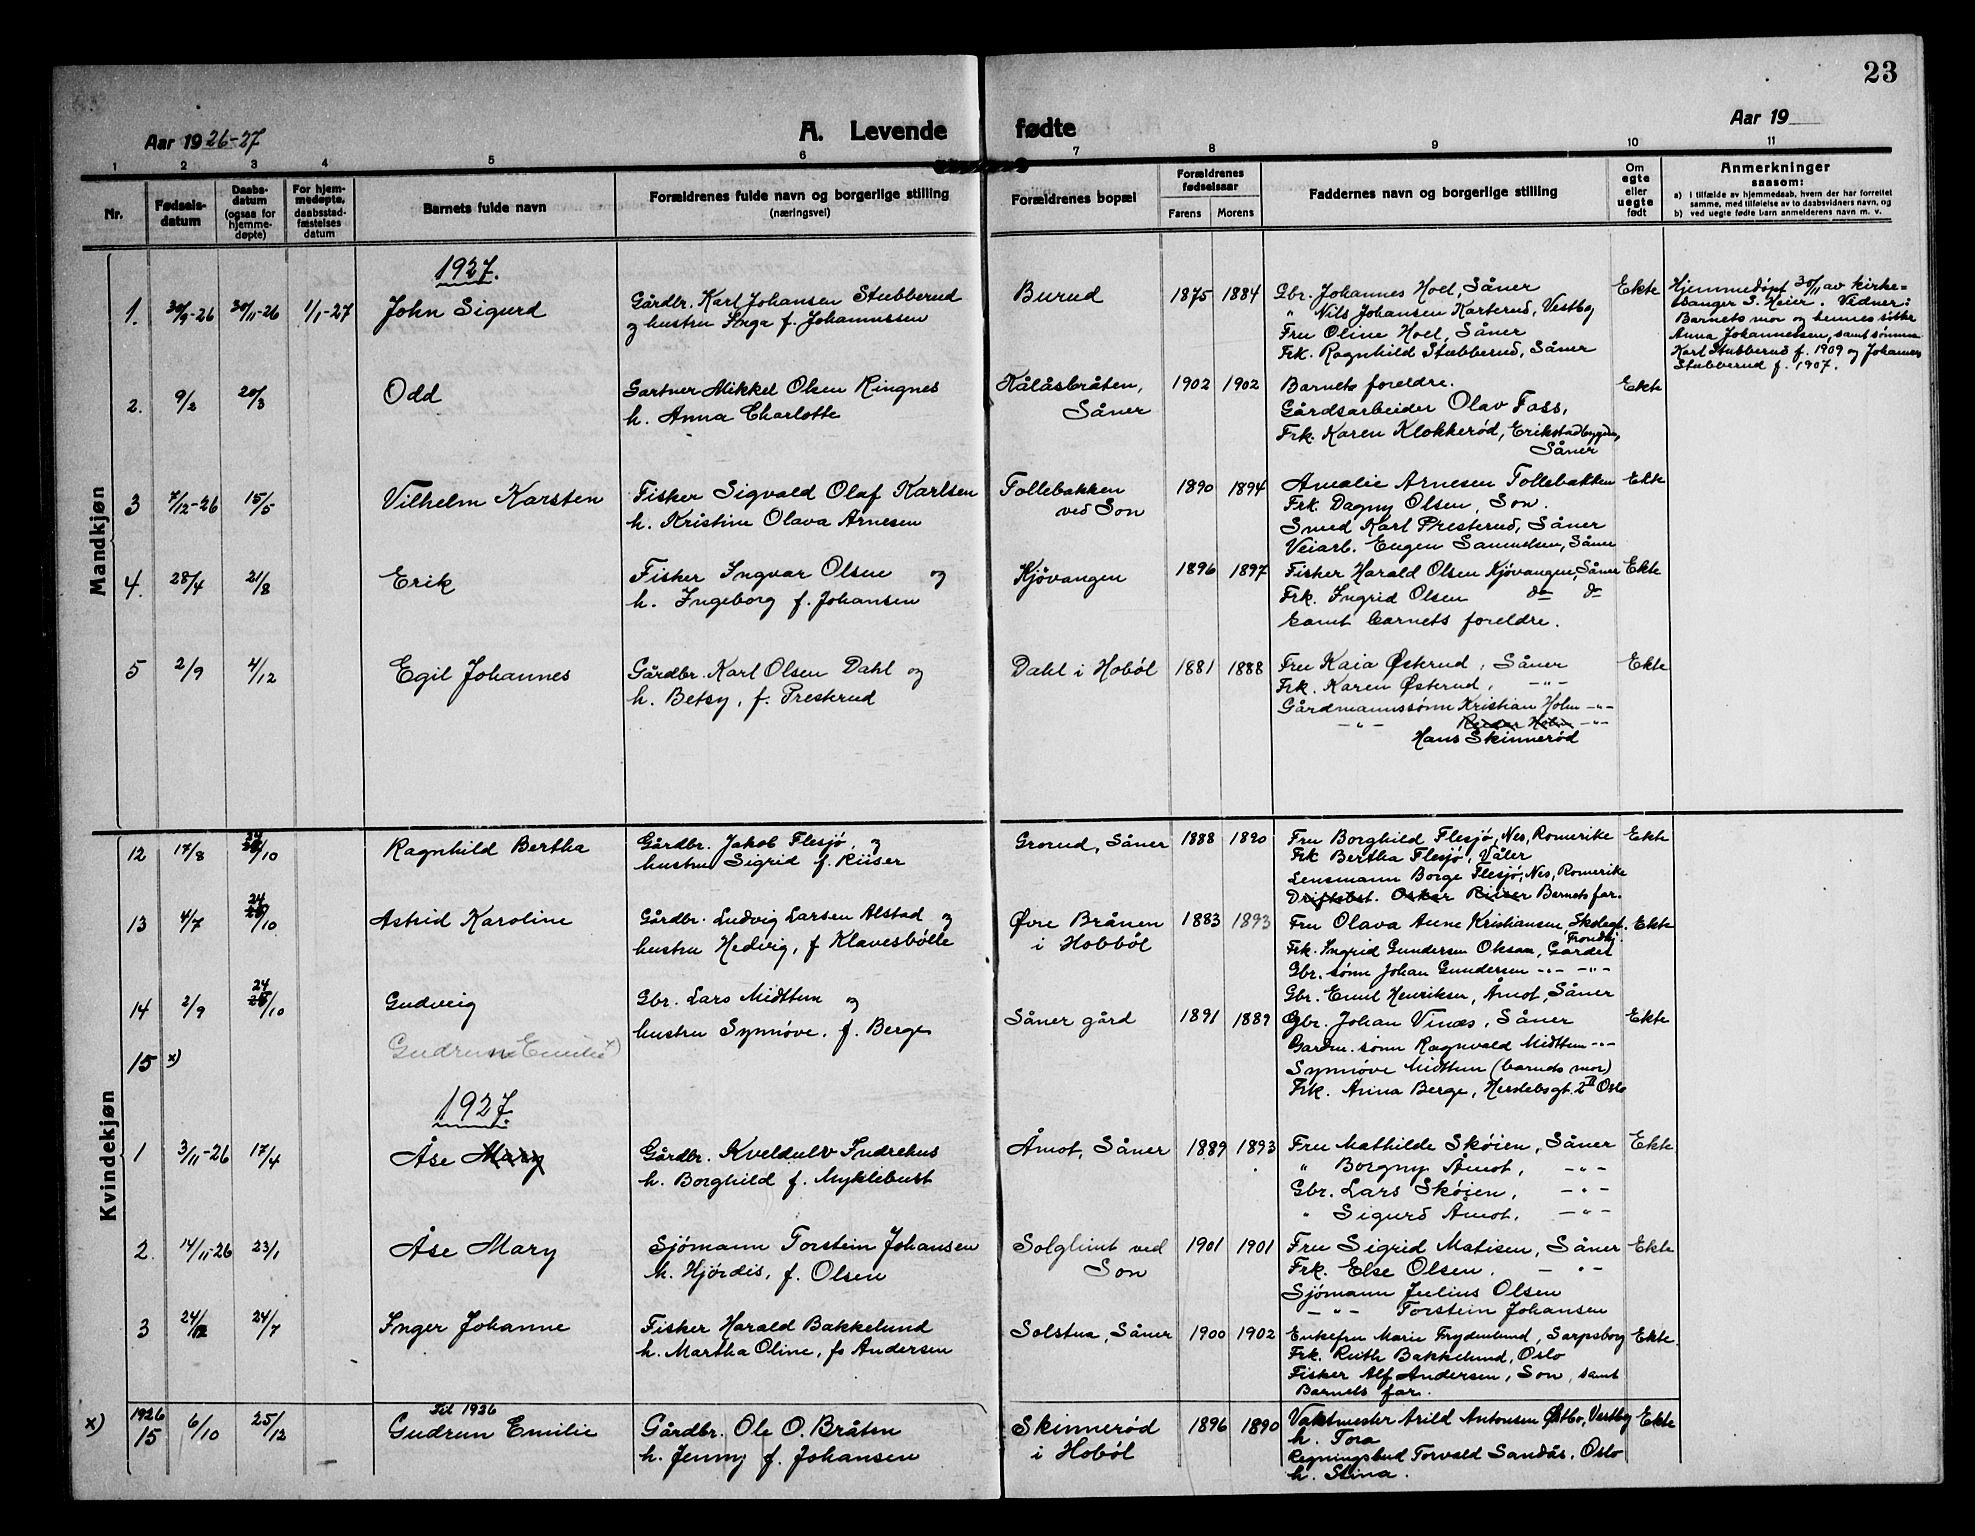 23
Aar 1926-27
A. Levende fødte
Aar 19
1 2 3 4 5 6 7 8 9 10 11
Nr.
Fødsels-
datum
Daabs-
datum
(ogsaa for
hjemme-
døpte)
For hjem-
medøpte,
daabsstad-
fæstelses
datum
Barnets fulde navn
Forældrenes fulde navn og borgerlige stilling
(næringsvei)
Forældrenes bopæl
Forældrenes
fødselsaar
Farens Morens
Faddernes navn og borgerlige stilling
Om
egte
eller
uegte
født
Anmerkninger
saasom:
a) i tilfælde av hjemmedaab, hvem der har forrettet
samme, med tilføielse av to daabsvidners navn, og
b) ved uegte fødte barn anmelderens navn m. v.
Mandkjøn
1927.
1. 30/9-26 30/11-26 1/1-27 John Sigurd
Gårdbr. Karl Johansen Stubberud
og hustru Inga f. Johannessen
Burud 1875 1884
Gbr. Johannes Hoel, Såner
" Nils Johansen Karterud, Vestby
Fru Oline Hoel, Såner
Frk. Ragnhild Stubberud, Såner
Ekte
Hjemmedøpt 30/11 av kirke=
sanger S. Heier. Vidner:
Barnets mor og hennes søster
Anna Johannessen, samt sønnene
Karl Stubberud f. 1909 og Johannes
Stubberud f. 1907.
2. 9/2 20/3 Odd
Gartner Mikkel Olsen Ringnes
h. Anna Charlotte
Kålåsbråten,
Såner
1902 1902
Barnets foreldre.
Gårdsarbeider Olav Foss,
Frk. Karen Klokkerød, Erikstadbygda,
Såner
Ekte
3 7/12-26 15/5 Vilhelm Karsten
Fisker Sigvald Olaf Karlsen
h. Kristine Olava Arnesen
Tollebakken
ved Son
1890 1894
Amalie Arnesen Tollebakken
Frk. Dagny Olsen, Son.
Smed Karl Presterud, Såner
Veiarb. Eugen Samuelsen, Såner
Ekte
4. 28/4 21/8 Erik
Fisker Ingvar Olsen og
h. Ingeborg f. Johansen
Kjøvangen 1896 1897
Fisker Harald Olsen Kjøvangen, Såner
Frk. Ingrid Olsen do do
samt barnets foreldre.
Ekte
5 2/9 4/12 Egil Johannes
Gårdbr. Karl Olsen Dahl og
h. Betsy, f. Presterud
Dahl i Hobøl 1881 1888
Fru Kaia Østerud, Såner
Frk. Karen Østerud, -"-
Gårdmannssønn Kristian Holm -"-
-"- Reidar Holm -"-
Hans Skinnerød
Ekte
Kvindekjøn
12 17/8 24/10 Ragnhild Bertha
Gårdbr. Jakob Flesjø, og
hustru Sigrid f. Riiser
Grorud, Såner 1888 1890
Fru Borghild Flesjø, Nes, Romerike
Frk Bertha Flesjø, Våler
Lensmann Borge Flesjø, Nes, Romerike
Driftsbest. Oskar Riiser Barnets far.
Ekte
13 4/7 24/10 Astrid Karoline
Gårdbr. Ludvig Larsen Alstad og
hustru Hedvig, f Klavesbølle
Øvre Brånen
i Hobböl
1883 1893
Fru Olava Aune Kristiansen, Skolegt.
Trondhj.
Frk. Ingrid Gundersen Oksam, Garder
Gbr. sønn Johan Gundersen -"- -"-
Gbr. Emil Henriksen, Åmot, Såner
Ekte
14 2/9 24/10 Gudveig
Gbr. Lars Midttun og
hustru Synnøve, f. Berge
Såner gård 1891 1889
Gbr. Johan Vinæs, Såner
Gardm. sønn Ragnvald Midttun -"-
Synnøve Midttun (barnets mor)
Frk. Anna Berge, Herslebsgt. 2 II Oslo
Ekte
15 x) Gudrun Emilie x)
1927.
1 3/11-26 17/4 Åse Mary
Gårdbr. Kveldulv Indrehus
h. Borghild f. Myklebust
Åmot, Såner 1889 1893
Fru Mathilde Skøien, Såner
" Borgny Åmot, -"-
Gbr. Lars Skøien, -"-
" Sigurd Åmot, -"-
Ekte
2. 14/11-26 23/1 Åse Mary
Sjømann Torstein Johansen
h. Hjørdis, f. Olsen
Solglimt ved
Son
1901 1901
Fru Sigrid Matisen, Såner
Frk. Else Olsen. -"-
Sjømann Julius Olsen
-"- Torstein Johansen
Ekte
3 24/12 24/7 Inger Johanne
Fisker Harald Bakkelund
h. Martha Oline, fø Andersen
Solstua, Såner 1900 1902
Enkefru Marie Frydenlund, Sarpsborg
Frk. Ruth Bakkelund, Oslo
Fisker Alf Andersen, Son, samt
Barnets far.
Ekte
x) 1926
15 6/10 25/12 Til 1926
Gudrun Emilie
Gårdbr. Ole O. Bråten
h. Jenny f. Johansen
Skinnerød
i Hobøl
1896 1890
Vaktmester Arild Antonsen Østbo, Vestby
h. Tora
Regningsbud Torvald Sandås, Oslo
h. Stina.
Ekte